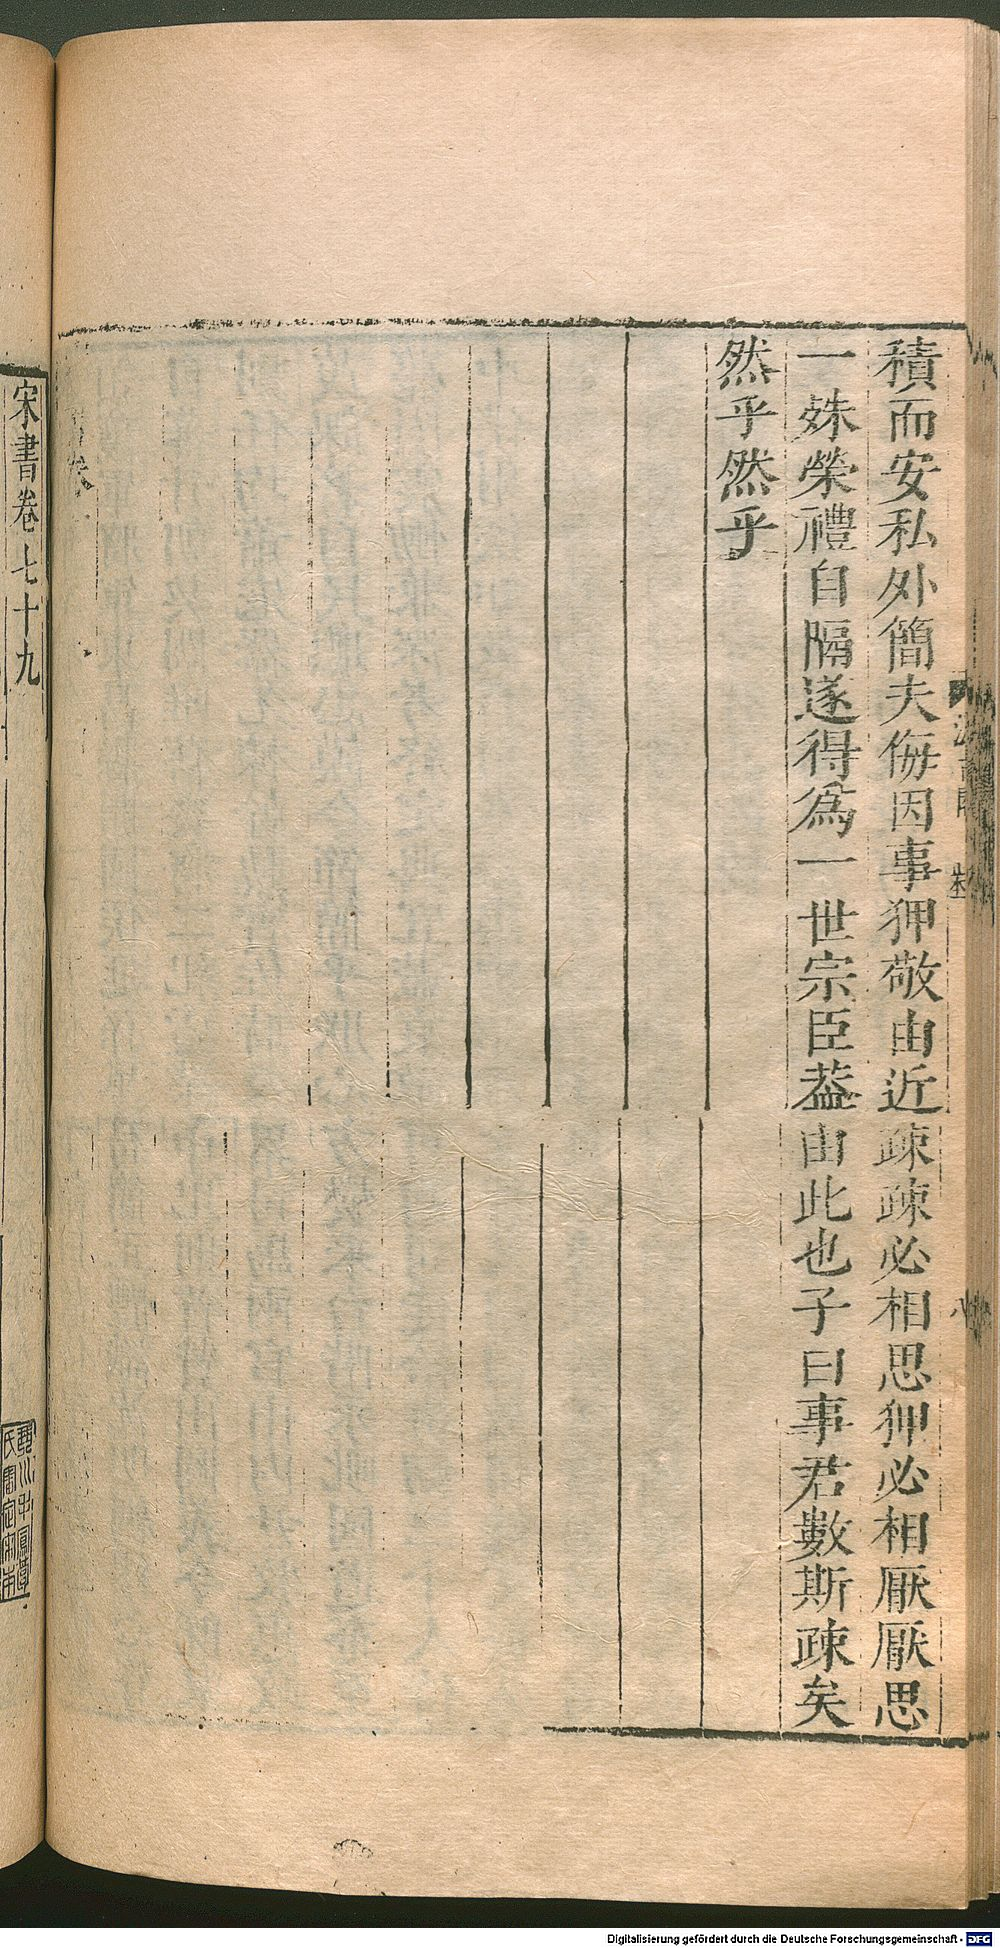 積而安私外簡夫侮因事狎敬由近疎疎必相思狎必相厭厭思
一姝榮禮自隔遂得爲一世宗臣葢由此也子曰事君數斯疎矣
然乎然乎
宋書卷七十九
Digitalisierung gefördert durch die Deutsche Forschungsgemeinschaft - DFG